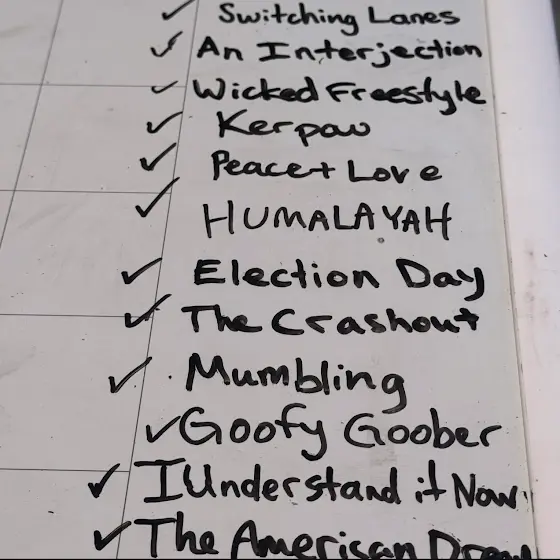 ✓ Switching Lanes
✓ An Interjection
✓ Wicked Freestyle
✓ Kerpow
✓ Peace + Love
✓ HUMALAYAH
✓ Election Day
✓ The Crashout
✓ Mumbling
✓ Goofy Goober
✓ I Understand it Now
✓ The American